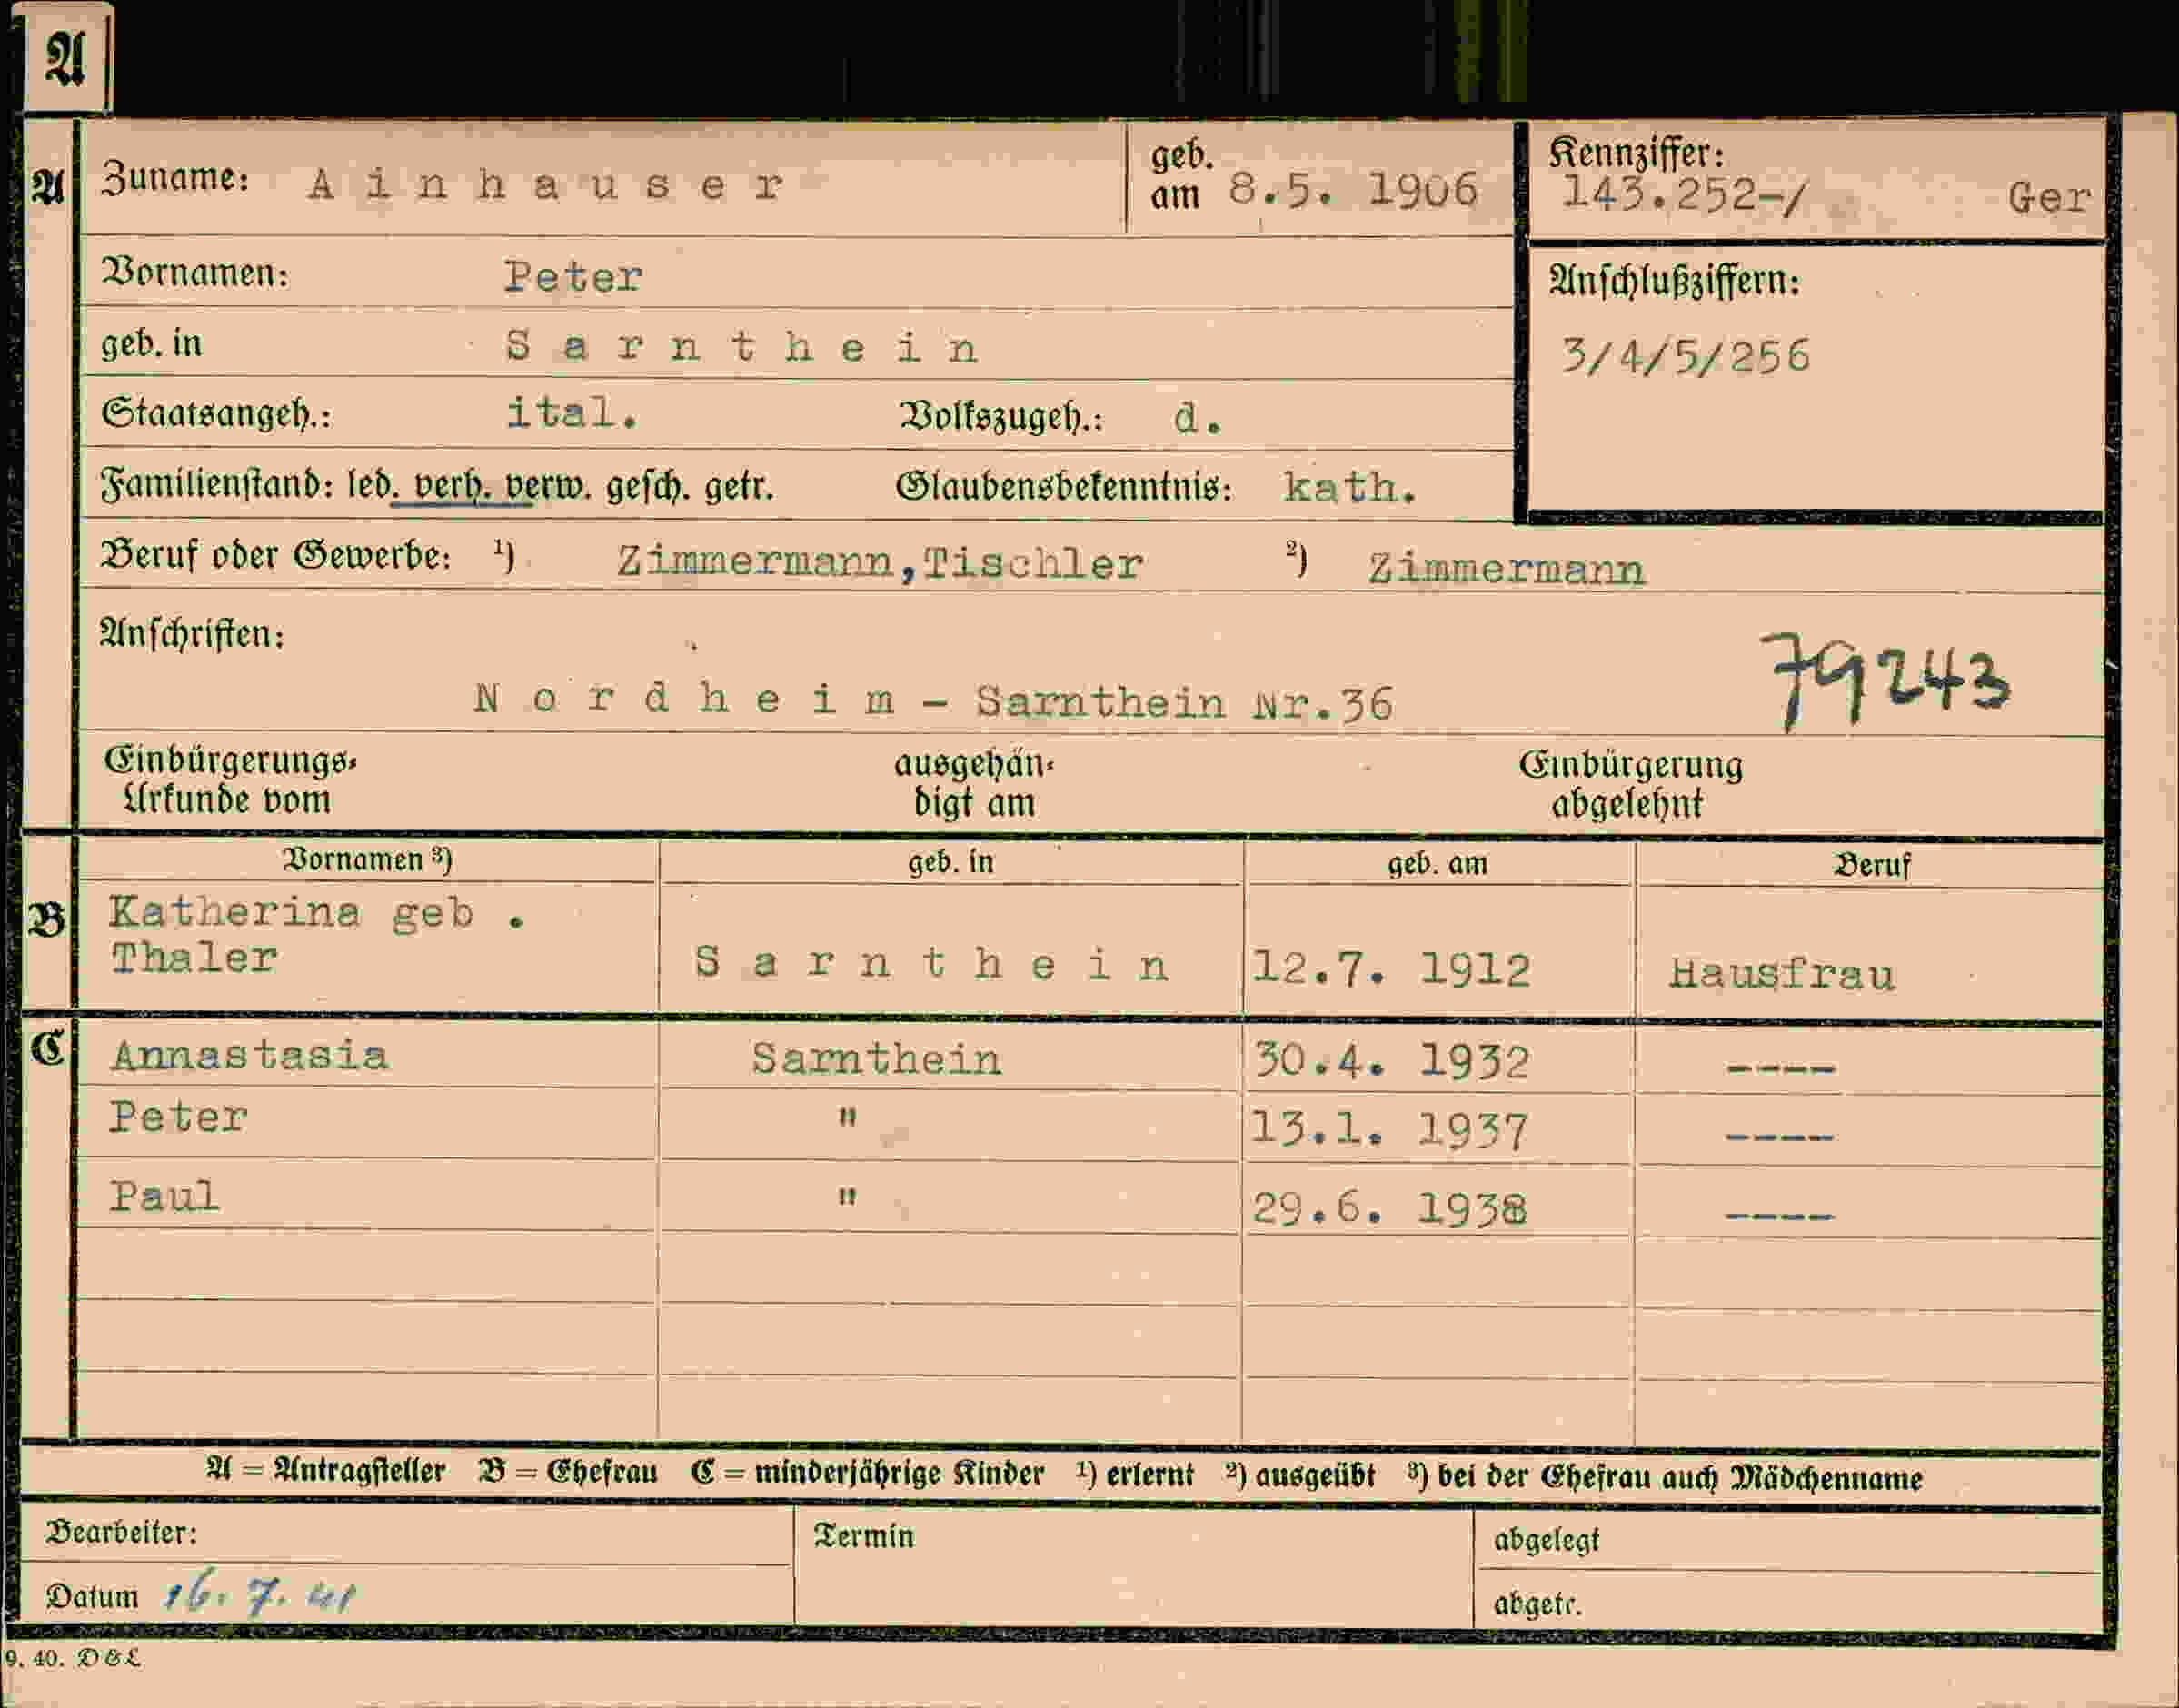 A
A Zuname: Ainhauser geb. am 8.5. 1906 Kennziffer: 143.252-/ Ger
Vornamen: Peter Anschlußziffern:
geb. in Sarnthein 3/4/5/256
Staatsangeh.: ital. Volkszugeh.: d.
Familienstand: led. verh. verw. gesch. getr. Glaubensbekenntnis: kath.
Beruf oder Gewerbe: ¹) Zimmermann,Tischler ²) Zimmermann
Anschriften:
79243
Nordheim - Sarnthein Nr.36
Einbürgerungs- ausgehän- Einbürgerung
Urkunde vom digt am abgelehnt
Vornamen ³) geb. in geb. am Beruf
B Katherina geb .
Thaler Sarnthein 12.7. 1912 Hausfrau
C Annastasia Sarnthein 30.4. 1932 ----
Peter " 13.1. 1937 ----
Paul " 29.6. 1938 ----
A = Antragsteller B = Ehefrau C = minderjährige Kinder ¹) erlernt ²) ausgeübt ³) bei der Ehefrau auch Mädchenname
Bearbeiter: Termin abgelegt
Datum 16. 7. 41 abgetr.
9. 40. D & L